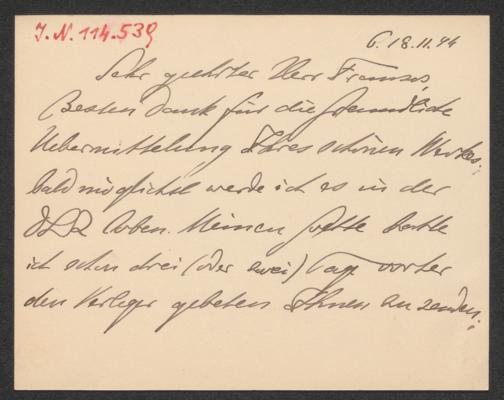 J. N. 114.539
G. 18.11.94
Sehr geehrter Herr Franzos,
Besten Dank für die freundliche
Uebermittelung Ihres schönen Werkes.
bald möglichst werde ich es in der
loben. Meinen hatte
ich schon drei (oder zwei) Tage vorher
den Verleger gebeten Ihnen zu senden;